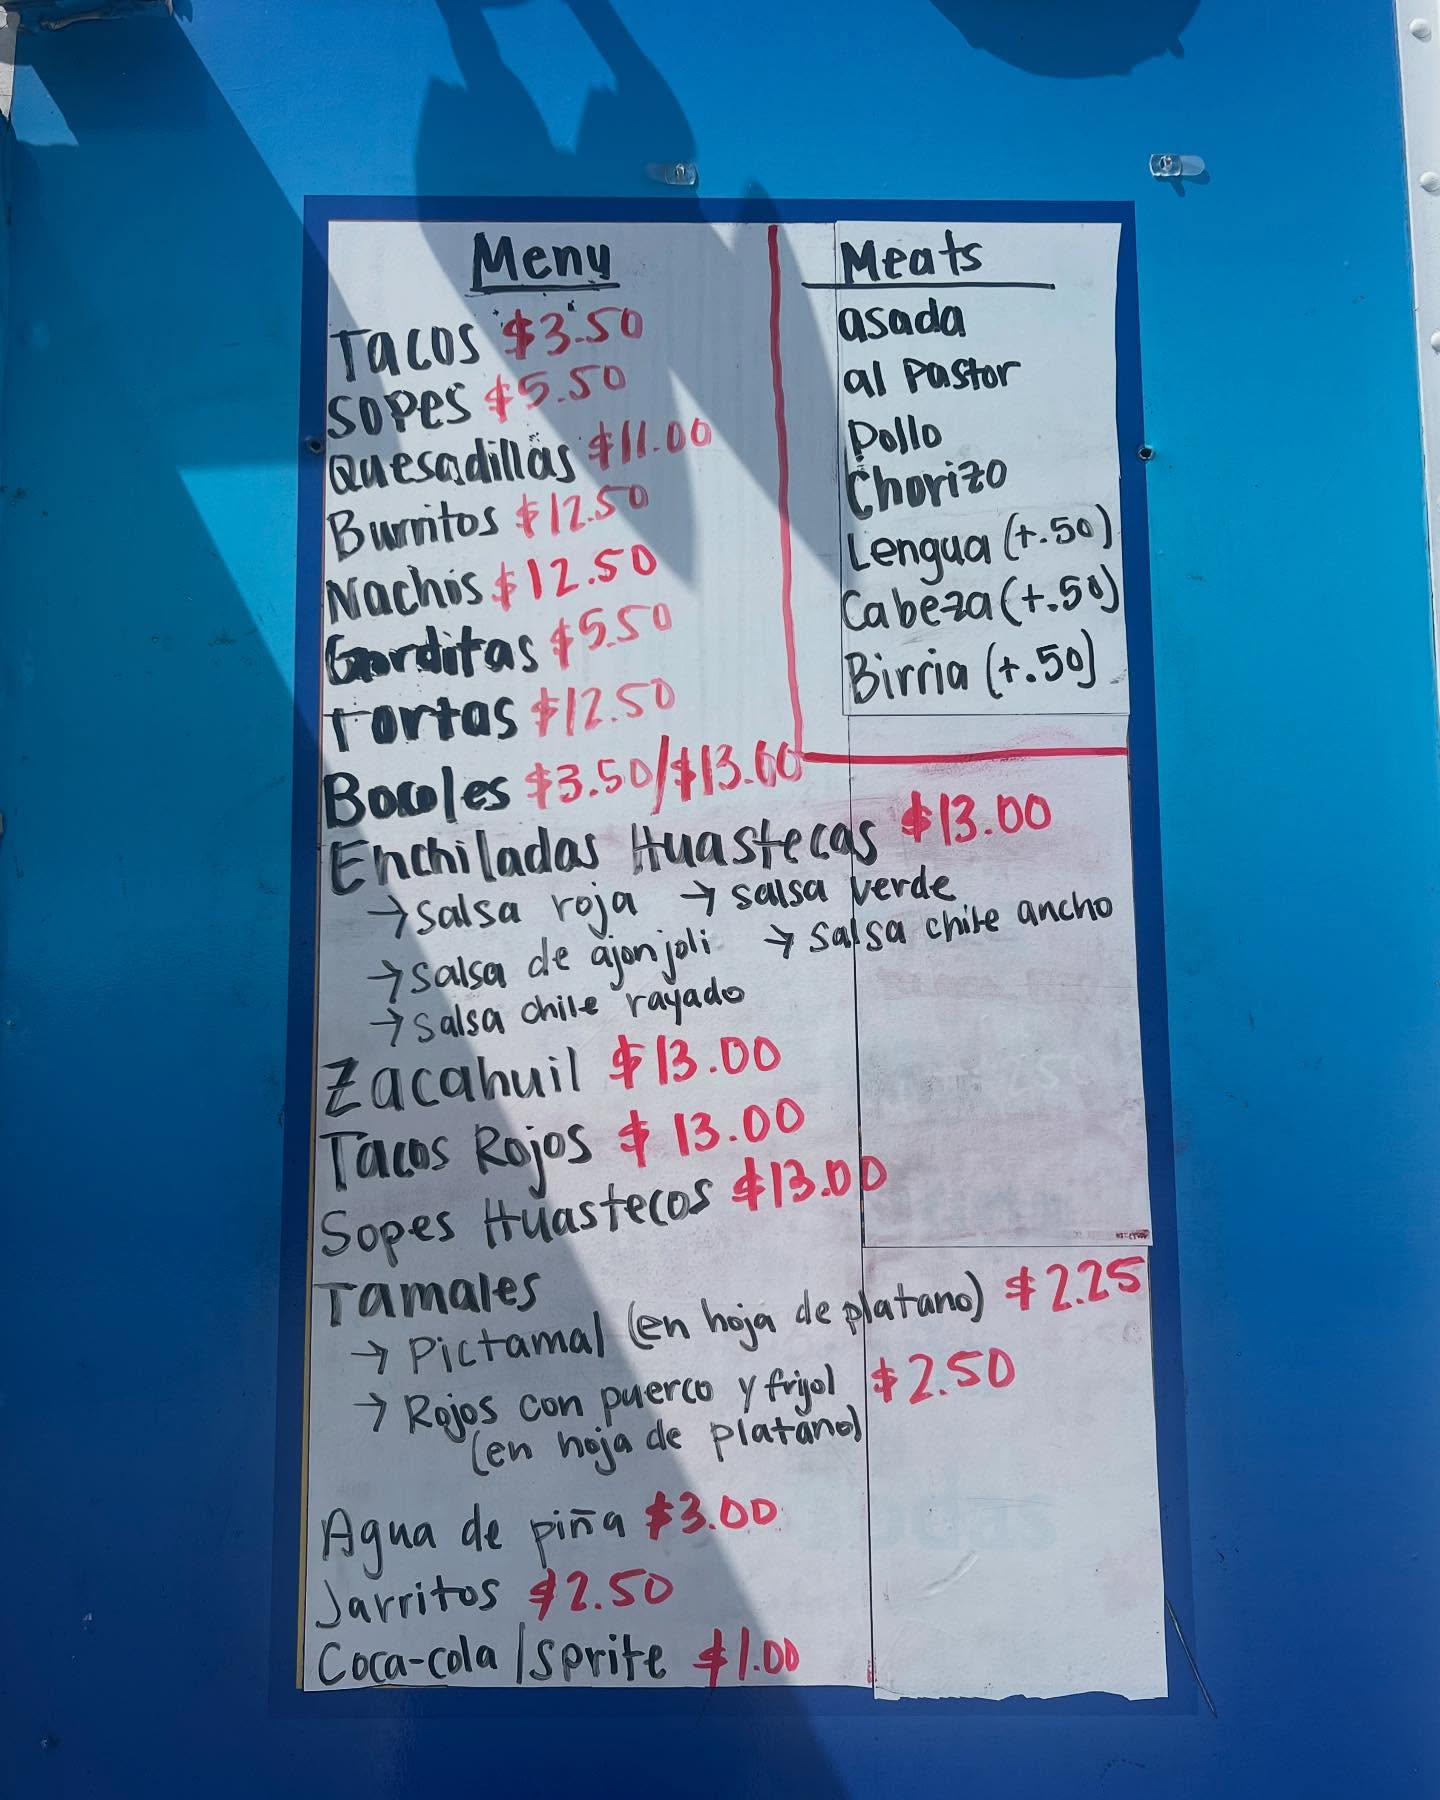 Menu
Tacos $3.50
Sopes $5.50
Quesadillas $11.00
Burritos $12.50
Nachis $12.50
Gorditas $5.50
Tortas $12.50
Bocoles $3.50/$13.00
Meats
asada
al Pastor
Pollo
Chorizo
Lengua (+.50)
Cabeza (+.50)
Birria (+.50)
Enchiladas Huastecas $13.00
→ salsa roja → salsa verde
→ salsa de ajonjoli → salsa chile ancho
→ salsa chile rayado
Zacahuil $13.00
Tacos Rojos $13.00
Sopes Huastecos $13.00
Tamales
→ Pictamal (en hoja de platano) $2.25
→ Rojos con puerco y frijol $2.50
(en hoja de platano)
Agua de piña $3.00
Jarritos $2.50
Coca-cola/Sprite $1.00